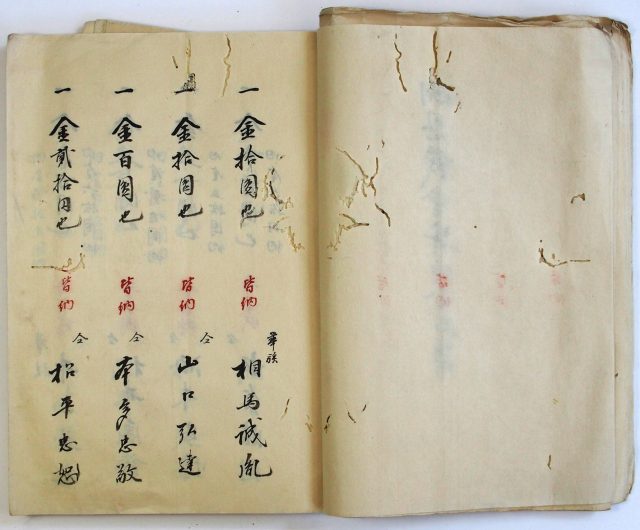 一金拾圓也 皆納 華族 相馬誠胤
一金拾圓也 皆納 仝 山口弘達
一金百圓也 皆納 仝 本多忠敬
一金貳拾円也 皆納 仝 松平忠恕